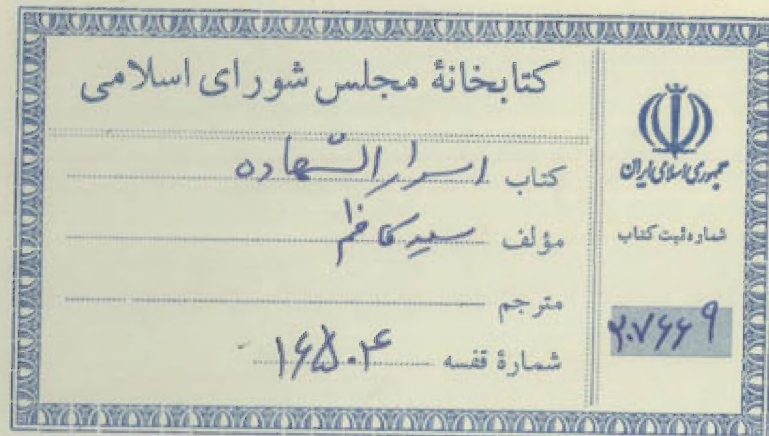 کتابخانهٔ مجلس شورای اسلامی
کتاب اسرار الشهاده
مؤلف سید کاظم
مترجم
شمارهٔ قفسه ۱۶۵۰۴
جمهوری اسلامی ایران
شماره ثبت کتاب
۲۰۷۶۶۹